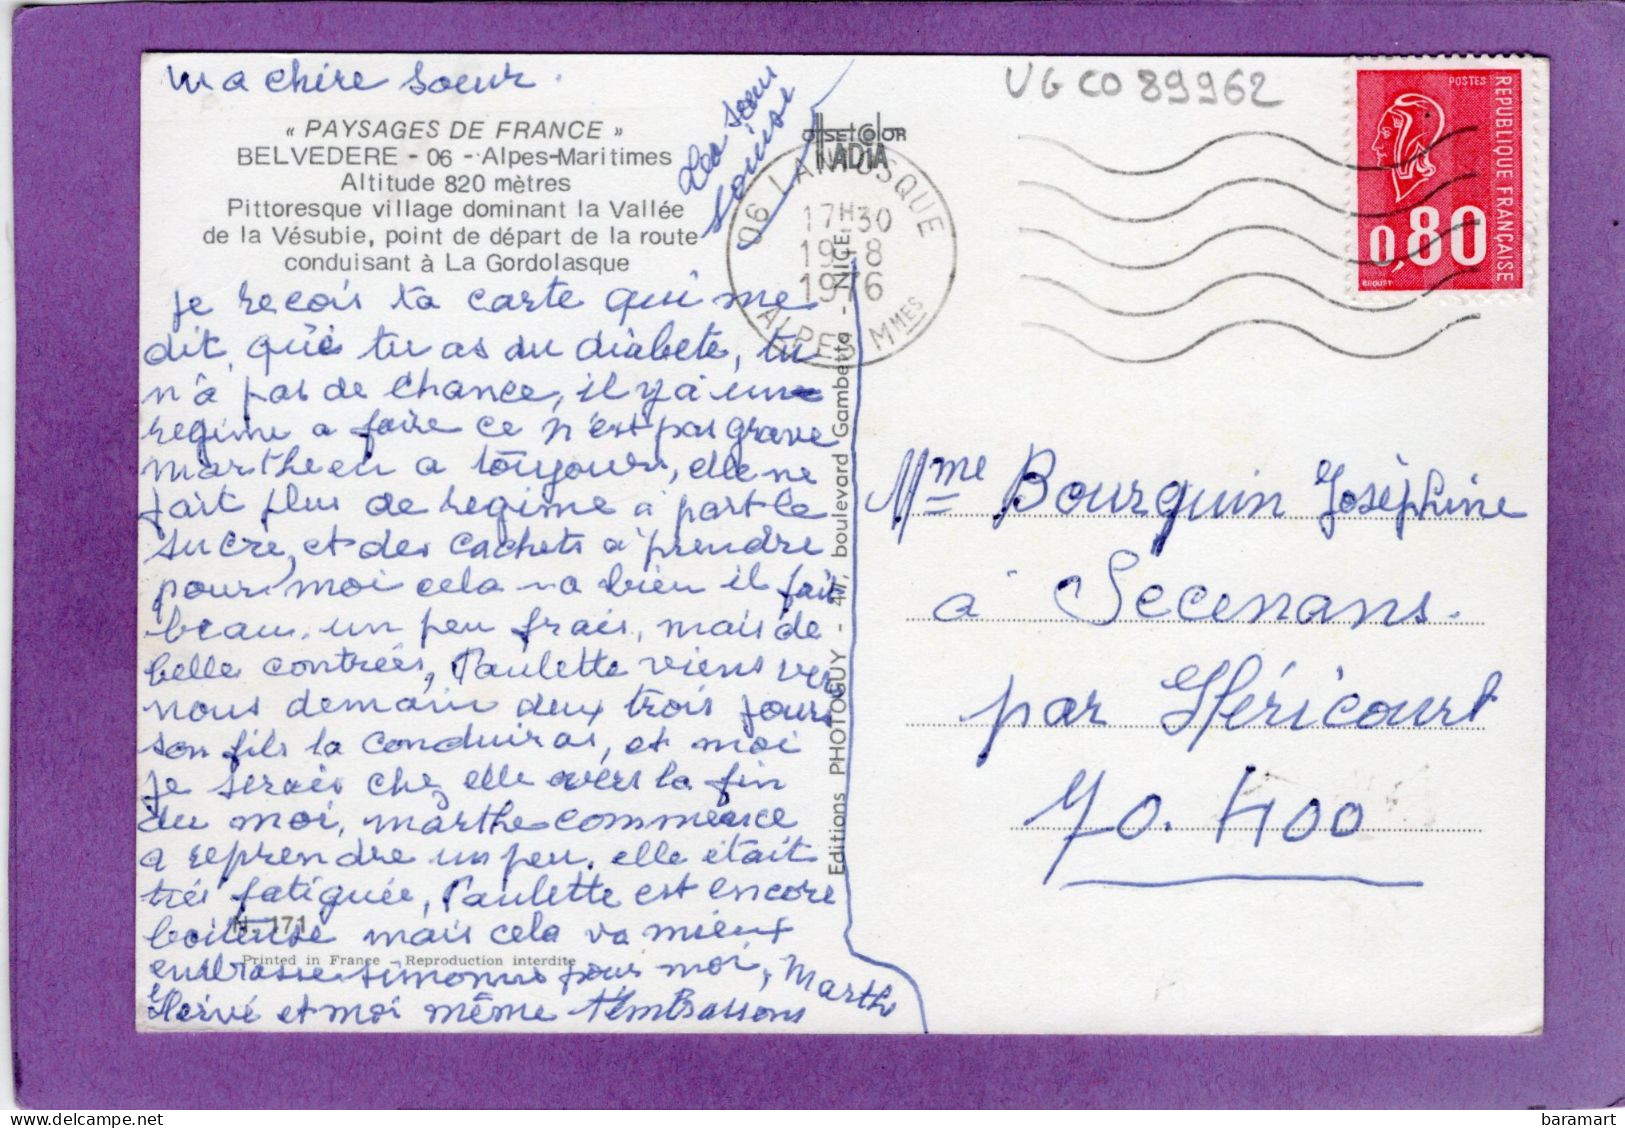 Ma chère soeur.
« PAYSAGES DE FRANCE »
BELVEDERE - 06 - Alpes-Maritimes
Altitude 820 mètres
Pittoresque village dominant la Vallée
de la Vésubie, point de départ de la route
conduisant à La Gordolasque
je recois ta carte qui me
dit, que tu as du diabete, tu
n'a pas de chance, il y a un
regime a faire ce n'est pas grave
marthe en a toujours, elle ne
fait plus de regime a part le
sucre, et des cachets a prendre
pour moi cela va bien il fait
beau. un peu frais, mais de
belle contrées, Paulette viens vers
nous demain deux trois jours
son fils la conduiras, et moi
je serais chez elle vers la fin
du moi, marthe commence
a reprendre un peu. elle était
très fatiguée, Paulette est encore
boiteuse mais cela va mieux
N. 171
Printed in France - Reproduction interdite
embrasse Simonne pour moi, Marthe
Hervé et moi même t'embrassons
soeur
Louise
offset color
NADIA
Editions PHOTOGUY - 41, boulevard Gambetta - NICE
06 LANTOSQUE
17H30
19-8
1976
ALPES MMES
UGCO 89962
POSTES
REPUBLIQUE FRANÇAISE
0,80
Mme Bourquin Joséphine
à Secenans.
par Héricourt
70. 400
delcampe.net
baramart